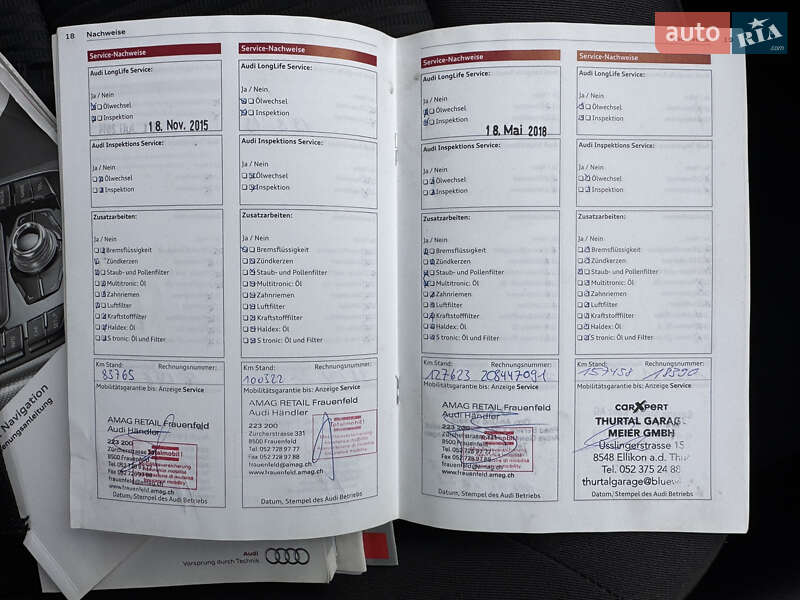 18 Nachweise
Service-Nachweise
Audi LongLife Service:
Ja / Nein
Ölwechsel
Inspektion
18. Nov. 2015
Audi Inspektions Service:
Ja / Nein
Ölwechsel
Inspektion
Zusatzarbeiten:
Ja / Nein
Bremsflüssigkeit
Zündkerzen
Staub- und Pollenfilter
Multitronic: Öl
Zahnriemen
Luftfilter
Kraftstofffilter
Haldex: Öl
S tronic: Öl und Filter
Km Stand: Rechnungsnummer:
83765
Mobilitätsgarantie bis: Anzeige Service
AMAG RETAIL Frauenfeld
Audi Händler
223 200
Zürcherstrasse 331
8500 Frauenfeld
Tel. 052 728 97 77
Fax 052 728 97 88
frauenfeld.amag.ch
www.frauenfeld.amag.ch
Totalmobil!
Datum, Stempel des Audi Betriebs
Service-Nachweise
Audi LongLife Service:
Ja / Nein
Ölwechsel
Inspektion
Audi Inspektions Service:
Ja / Nein
Ölwechsel
Inspektion
Zusatzarbeiten:
Ja / Nein
Bremsflüssigkeit
Zündkerzen
Staub- und Pollenfilter
Multitronic: Öl
Zahnriemen
Luftfilter
Kraftstofffilter
Haldex: Öl
S tronic: Öl und Filter
Km Stand: Rechnungsnummer:
100322
Mobilitätsgarantie bis: Anzeige Service
AMAG RETAIL Frauenfeld
Audi Händler
223 200
Zürcherstrasse 331
8500 Frauenfeld
Tel. 052 728 97 77
Fax 052 728 97 88
frauenfeld@amag.ch
www.frauenfeld.amag.ch
Totalmobil!
Datum, Stempel des Audi Betriebs
Service-Nachweise
Audi LongLife Service:
Ja / Nein
Ölwechsel
Inspektion
18. Mai 2018
Audi Inspektions Service:
Ja / Nein
Ölwechsel
Inspektion
Zusatzarbeiten:
Ja / Nein
Bremsflüssigkeit
Zündkerzen
Staub- und Pollenfilter
Multitronic: Öl
Zahnriemen
Luftfilter
Kraftstofffilter
Haldex: Öl
S tronic: Öl und Filter
Km Stand: Rechnungsnummer:
127623 208447091
Mobilitätsgarantie bis: Anzeige Service
AMAG RETAIL Frauenfeld
Audi Händler
223 200
Zürcherstrasse 331
8500 Frauenfeld
Tel. 052 728 97 77
Fax 052 728 97 88
frauenfeld@amag.ch
www.frauenfeld.amag.ch
Datum, Stempel des Audi Betriebs
Service-Nachweise
Audi LongLife Service:
Ja / Nein
Ölwechsel
Inspektion
Audi Inspektions Service:
Ja / Nein
Ölwechsel
Inspektion
Zusatzarbeiten:
Ja / Nein
Bremsflüssigkeit
Zündkerzen
Staub- und Pollenfilter
Multitronic: Öl
Zahnriemen
Luftfilter
Kraftstofffilter
Haldex: Öl
S tronic: Öl und Filter
Km Stand: Rechnungsnummer:
157458
Mobilitätsgarantie bis: Anzeige Service
carXpert
THURTAL GARAG
MEIER GMBH
Usslingerstrasse 15
8548 Ellikon a.d. Thur
Tel. 052 375 24 88
thurtalgarage@bluew
Datum, Stempel des Audi Betriebs
Navigation
enungsanleitung
Audi
Vorsprung durch Technik
auto RIA
.com